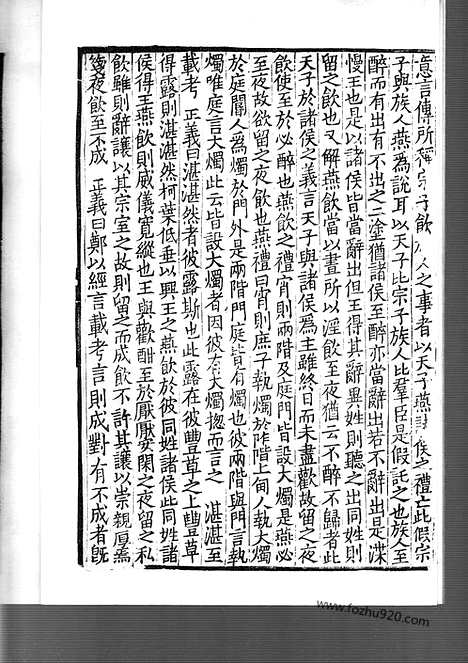 意言傳所稱宗子飲族人之事者以天子燕諸侯之禮亡此假宗
子與族人燕為說耳以天子比宗子族人比羣臣是假託之也族人至
醉而有出有不出之二塗猶諸侯至醉亦當辭出若不辭出是渫
慢王也是以諸侯皆當辭出但王得其辭異姓則聽之出同姓則
留之飲也又解燕飲當以晝所以淫飲至夜猶云不醉不歸者此
天子於諸侯之義言天子與諸侯為主雖終日而未盡歡故留之夜
飲使至於必醉也燕飲之禮宵則兩階及庭門皆設大燭是燕必
至夜故欲留之夜飲也燕禮曰宵則庶子執燭於阼階上甸人執大燭
於庭閽人為燭於門外是兩階門庭皆有燭也彼兩階與門言執
燭唯庭言大燭此云皆設大燭者因彼有大燭揔而言之 湛湛至
載考 正義曰湛湛然者彼露斯也此露在彼豐草之上豐草
得露則湛湛然柯葉低垂以興王之燕飲於彼同姓諸侯此同姓諸
侯得王燕飲則威儀寬縱也王與歡酣至於厭厭安閑之夜留之私
飲雖則辭讓以其宗室之故則留之而成飲不許其讓以崇親厚焉
夜飲至不成 正義曰鄭以經言載考言則成對有不成者旣